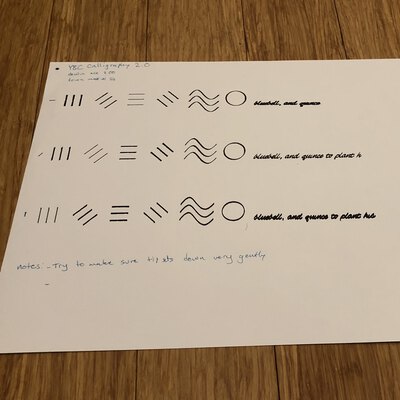 YBC Calligraphy 2.0
down
down
bluebell, and quince
bluebell, and quince to plant h
bluebell, and quince to plant his
notes: - Try to make sure tip sets down very gently
-